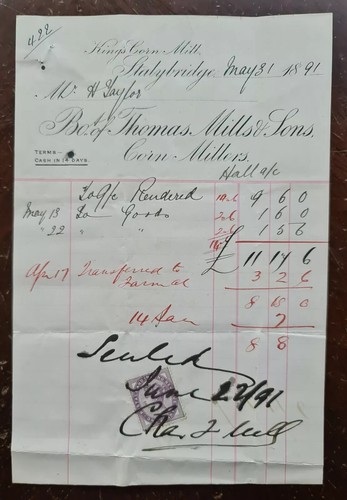 4.22
King's Corn Mill,
Stalybridge, May 31 1891
Mr. H Taylor
Bo.t of Thomas Mills & Sons,
Corn Millers.
TERMS—
CASH IN 14 DAYS.
Hall a/c
To a/c Rendered 9 6 0
May 13 To Goods 1 6 0
" 22 " "
£ 11 17 6
Apr 17 Transferred to Farm a/c 3 2 6
8 15 0
7
8 8
Settled
June 22/91